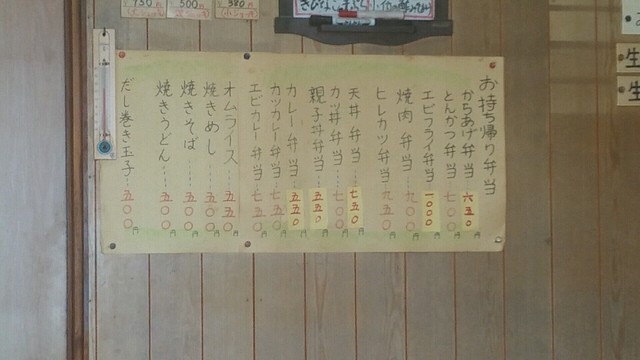 お持ち帰り弁当
からあげ弁当…六五〇円
とんかつ弁当…七〇〇円
エビフライ弁当…一〇〇〇円
焼肉弁当…九〇〇円
ヒレカツ弁当…九五〇円
天丼弁当…七五〇円
カツ丼弁当…七〇〇円
親子丼弁当…五五〇円
カレー弁当…五五〇円
カツカレー弁当…七五〇円
エビカレー弁当…七五〇円
オムライス…五五〇円
焼きめし…五〇〇円
焼きそば…五〇〇円
焼きうどん…五〇〇円
だし巻き玉子…五〇〇円
750
500
380
生
生